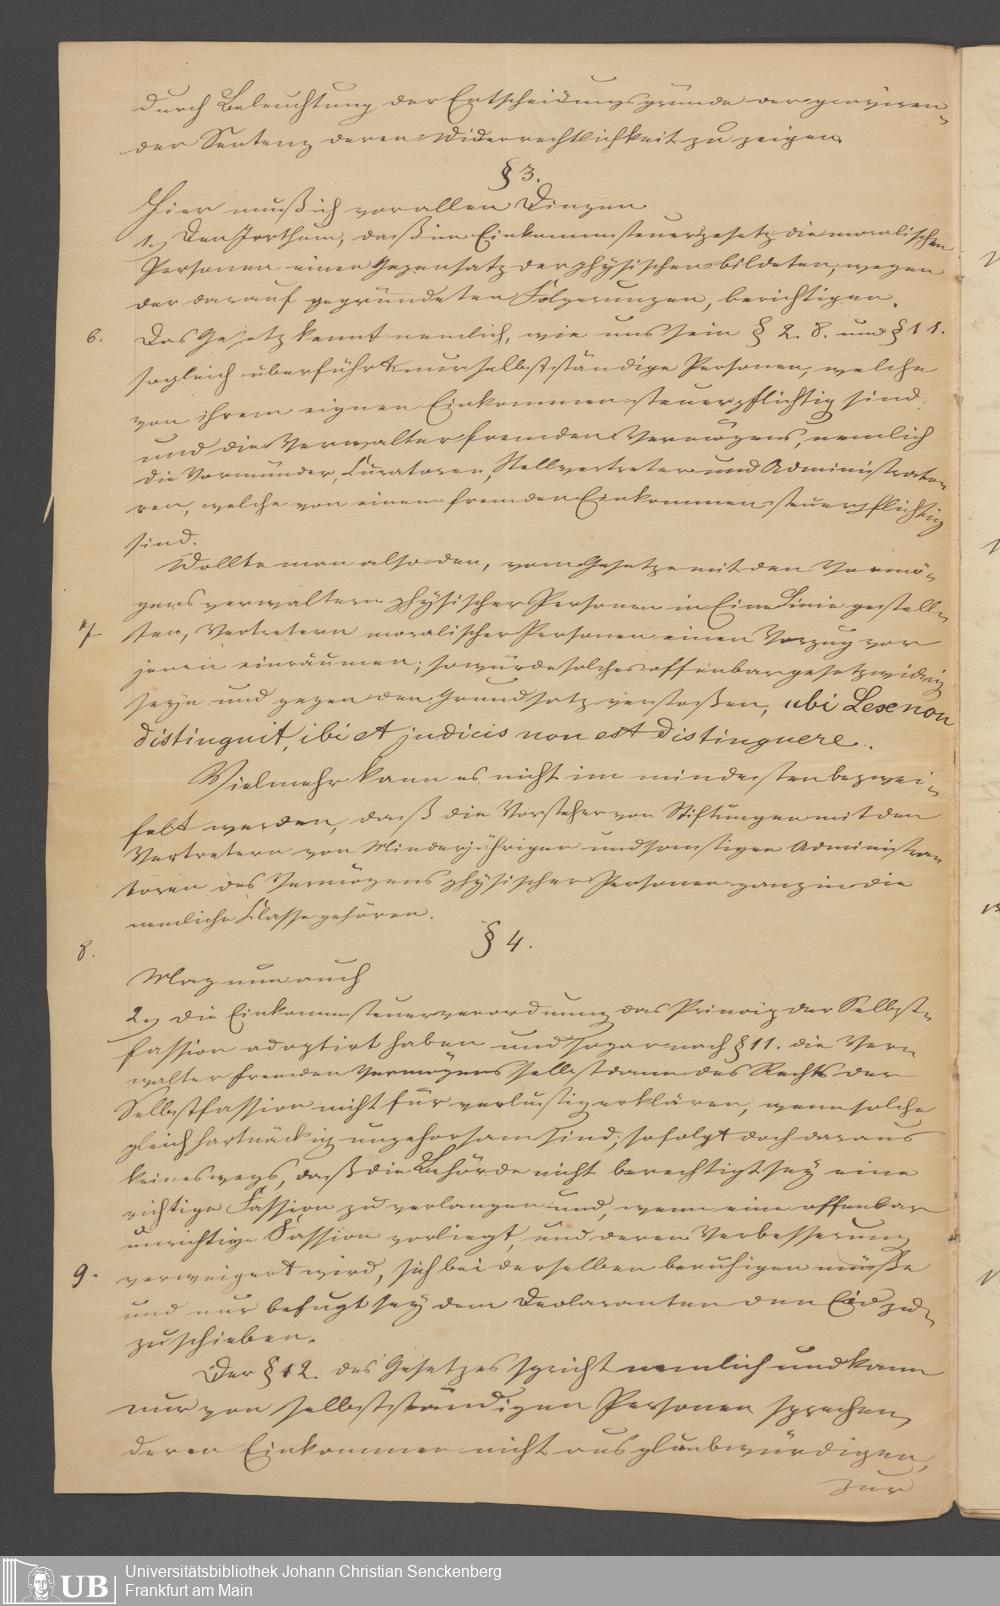 durch Beleuchtung der Entscheidungsgründe der graviren-
den Sentenz deren Widerrechtlichkeit zu zeigen.
§ 3.
Hier muß ich vor allen Dingen
1., Den Irrthum, daß im Einkommensteuergesetz die moralischen
Personen einen Gegensatz der physischen bildeten, wegen
der darauf gegründeten Folgerungen, berichtigen.
6. Das Gesetz kennt nemlich, wie uns sein § 2. 8. und § 11.
sogleich überführt nur selbstständige Personen, welche
von ihrem eignen Einkommen steuerpflichtig sind,
und die Verwalter fremden Vermögens, nemlich
die Vormünder, Curatoren, Stellvertreter und Administrato-
ren, welche von einem fremden Einkommen steuerpflichtig
sind.
Wollte man also den, vom Gesetze mit den Vermö-
gensverwaltern physischer Personen in Eine Linie gestell-
7. ten, Vertretern moralischer Personen einen Vorzug vor
jenen einräumen; so würde solches offenbar gesetzwidrig
seyn und gegen den Grundsatz verstoßen, ubi Lex non
distinguit, ibi et judicis non est distinguere.
Vielmehr kann es nicht im mindesten bezwei-
felt werden, daß die Vorsteher von Stiftungen mit den
Vertretern von Minderjährigen und sonstigen Administra-
toren des Vermögens physischer Personen ganz in die
nemliche Classe gehören.
8. § 4.
Mag nun auch
2., die Einkommsteuerverordnung das Princip der Selbst-
fassion adoptirt haben und sogar nach § 11. die Ver-
walter fremden Vermögens selbst dann des Rechts der
Selbstfassion nicht für verlustig erklären, wenn solche
gleich hartnäckig ungehorsam sind; so folgt doch daraus
keineswegs, daß die Behörde nicht berechtigt sey eine
richtige Fassion zu verlangen und, wenn eine offenbar
unrichtige Fassion vorliegt, und deren Verbesserung
9. verweigert wird, sich bei derselben beruhigen müsse
und nur befugt sey dem Declaranten den Eid
zuschieben.
Der § 12. des Gesetzes spricht nemlich und kann
nur von selbstständigen Personen sprechen,
deren Einkommen nicht aus glaubwürdigen,
zur
Universitätsbibliothek Johann Christian Senckenberg
Frankfurt am Main
UB